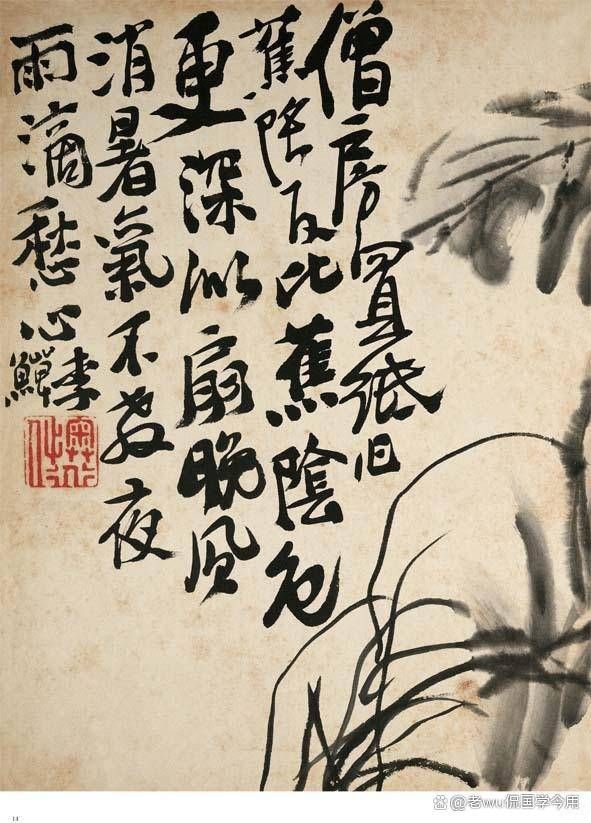 僧房紙旧
蕉陰比蕉陰色
更深似扇晚風
消暑氣不教夜
雨滴愁心李
鱓
14
@老wu侃国学今用